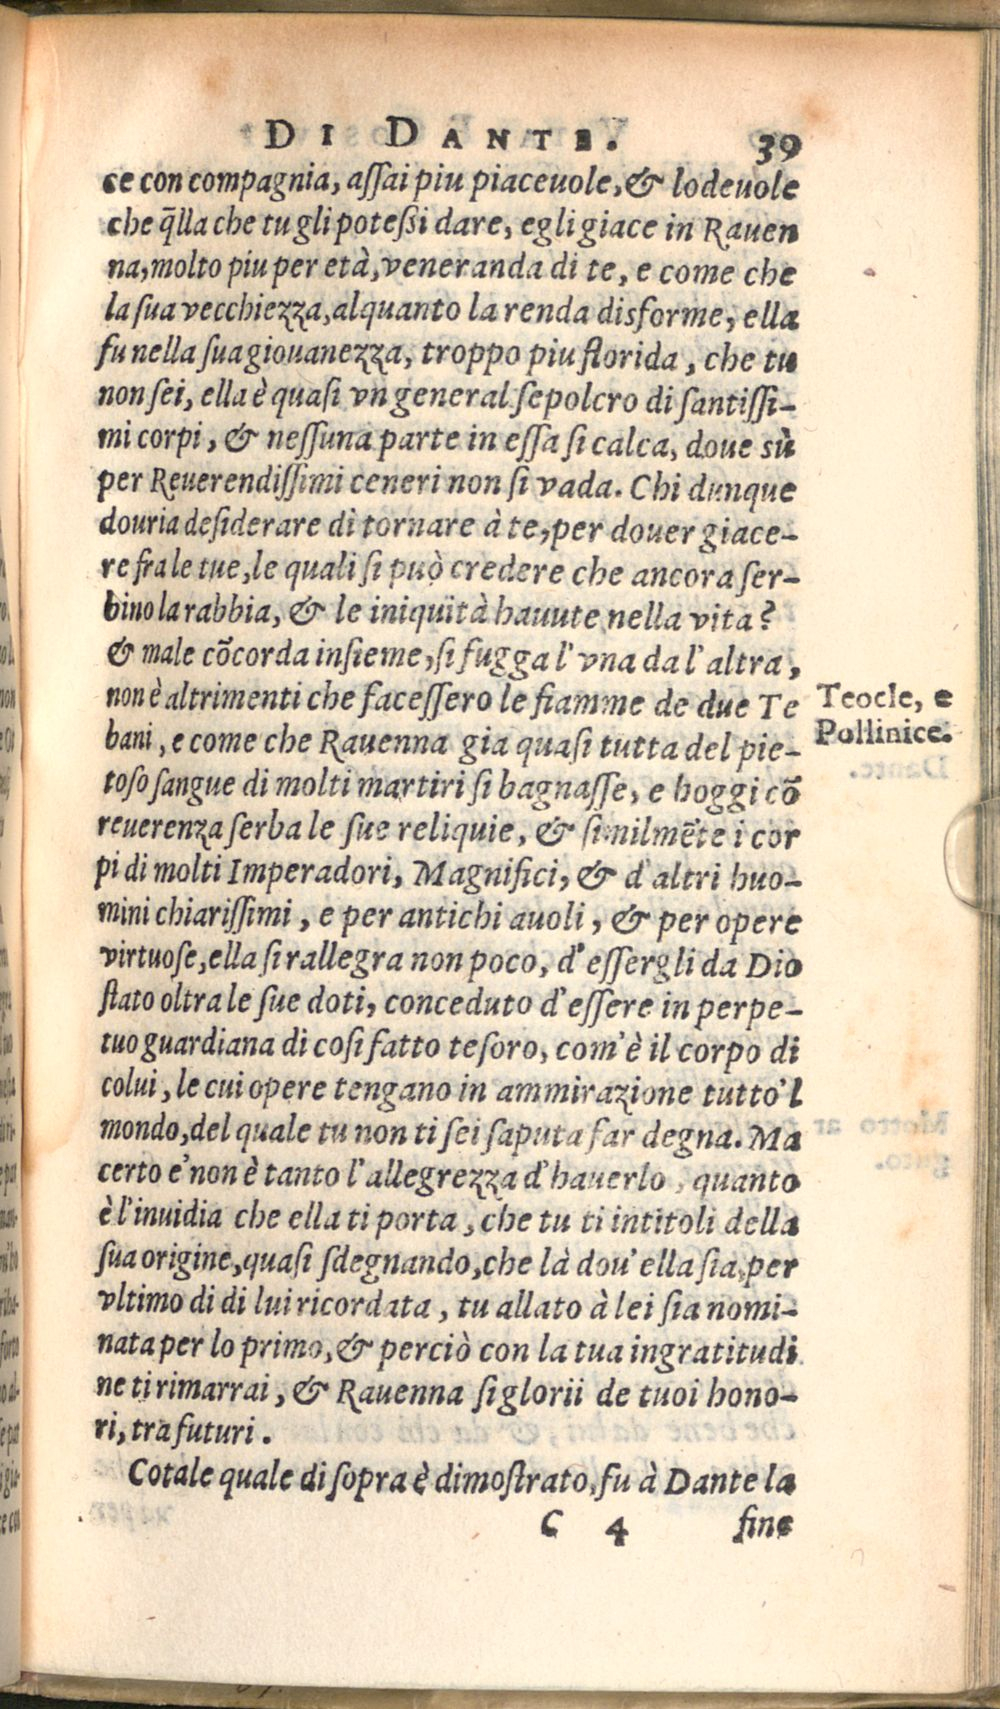 DI DANTE. 39
ce con compagnia, aſſai piu piaceuole, & lodeuole
che q̄lla che tu gli poteßi dare, egli giace in Rauen
na, molto piu per età, veneranda di te, e come che
la ſua vecchiezza, alquanto la renda disforme, ella
fu nella ſua giouanezza, troppo piu florida, che tu
non ſei, ella è quaſi vn general ſepolcro di ſantiſſi-
mi corpi, & neſſuna parte in eſſa ſi calca, doue sù
per Reuerendiſſimi ceneri non ſi vada. Chi dunque
douria deſiderare di tornare à te, per douer giace-
re fra le tue, le quali ſi può credere che ancora ſer-
bino la rabbia, & le iniquità hauute nella vita?
& male cōcorda inſieme, ſi fugga l'vna da l'altra,
non è altrimenti che faceſſero le fiamme de due Te
bani, e come che Rauenna gia quaſi tutta del pie-
toſo ſangue di molti martiri ſi bagnaſſe, e hoggi cō
reuerenza ſerba le ſue reliquie, & ſimilmēte i cor
pi di molti Imperadori, Magnifici, & d'altri huo-
mini chiariſſimi, e per antichi auoli, & per opere
virtuoſe, ella ſi rallegra non poco, d'eſſergli da Dio
ſtato oltra le ſue doti, conceduto d'eſſere in perpe-
tuo guardiana di coſi fatto teſoro, com'è il corpo di
colui, le cui opere tengano in ammirazione tutto'l
mondo, del quale tu non ti ſei ſaputa far degna. Ma
certo e' non è tanto l'allegrezza d'hauerlo, quanto
è l'inuidia che ella ti porta, che tu ti intitoli della
ſua origine, quaſi ſdegnando, che là dou'ella ſia, per
vltimo di di lui ricordata, tu allato à lei ſia nomi-
nata per lo primo, & perciò con la tua ingratitudi
ne ti rimarrai, & Rauenna ſi glorii de tuoi hono-
ri, tra futuri.
Cotale quale di ſopra è dimoſtrato, fu à Dante la
C 4 fine
Teocle, e
Pollinice.